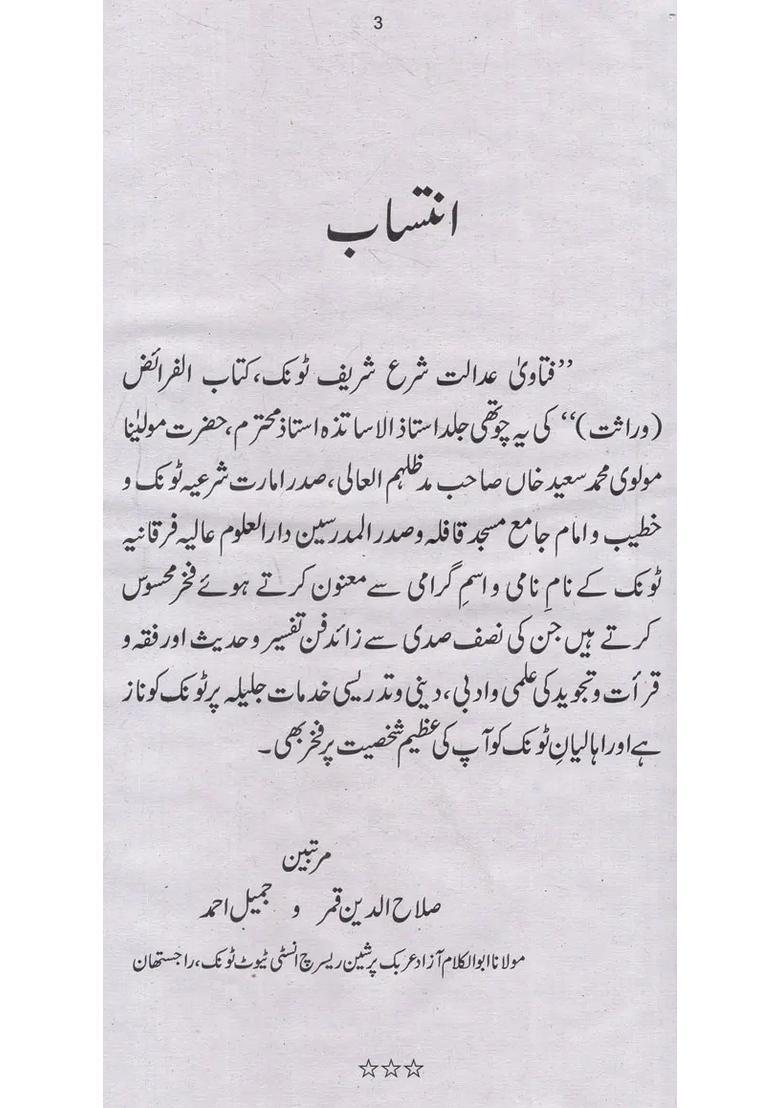 3
انتساب
’’فتاویٰ عدالت شرع شریف ٹونک، کتاب الفرائض
(وراثت)‘‘ کی یہ چوتھی جلد استاذ الاساتذہ استاذ محترم، حضرت مولیٰنا
مولوی محمد سعید خاں صاحب مدظلہم العالی، صدر امارت شرعیہ ٹونک و
خطیب و امام جامع مسجد قافلہ و صدر المدرسین دارالعلوم عالیہ فرقانیہ
ٹونک کے نامِ نامی و اسمِ گرامی سے معنون کرتے ہوئے فخر محسوس
کرتے ہیں جن کی نصف صدی سے زائد فن تفسیر و حدیث اور فقہ و
قرأت و تجوید کی علمی و ادبی، دینی و تدریسی خدمات جلیلہ پر ٹونک کو ناز
ہے اور اہالیانِ ٹونک کو آپ کی عظیم شخصیت پر فخر بھی۔
مرتبین
صلاح الدین قمر و جمیل احمد
مولانا ابوالکلام آزاد عربک پرشین ریسرچ انسٹی ٹیوٹ ٹونک، راجستھان
☆☆☆